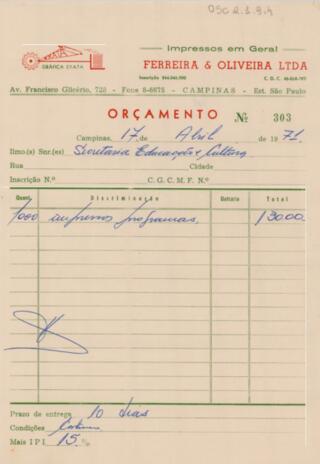 OSC 2.1.9.4
GRÁFICA EXATA
Impressos em Geral
FERREIRA & OLIVEIRA LTDA
Inscrição C. G. C.
Av. Francisco Glicério, 723 - Fone 8-6675 - CAMPINAS - Est. São Paulo
ORÇAMENTO Nº 303
Campinas, 17 de Abril de 1971
Ilmo.(s) Snr.(es) Secretaria Educação e Cultura
Rua Cidade
Inscrição N.º C. G. C. M. F. N.º
Quant. Discriminação Unitário Total
1000 impressos programas, 130,00
Prazo de entrega 10 dias
Condições
Mais I P I 15 %